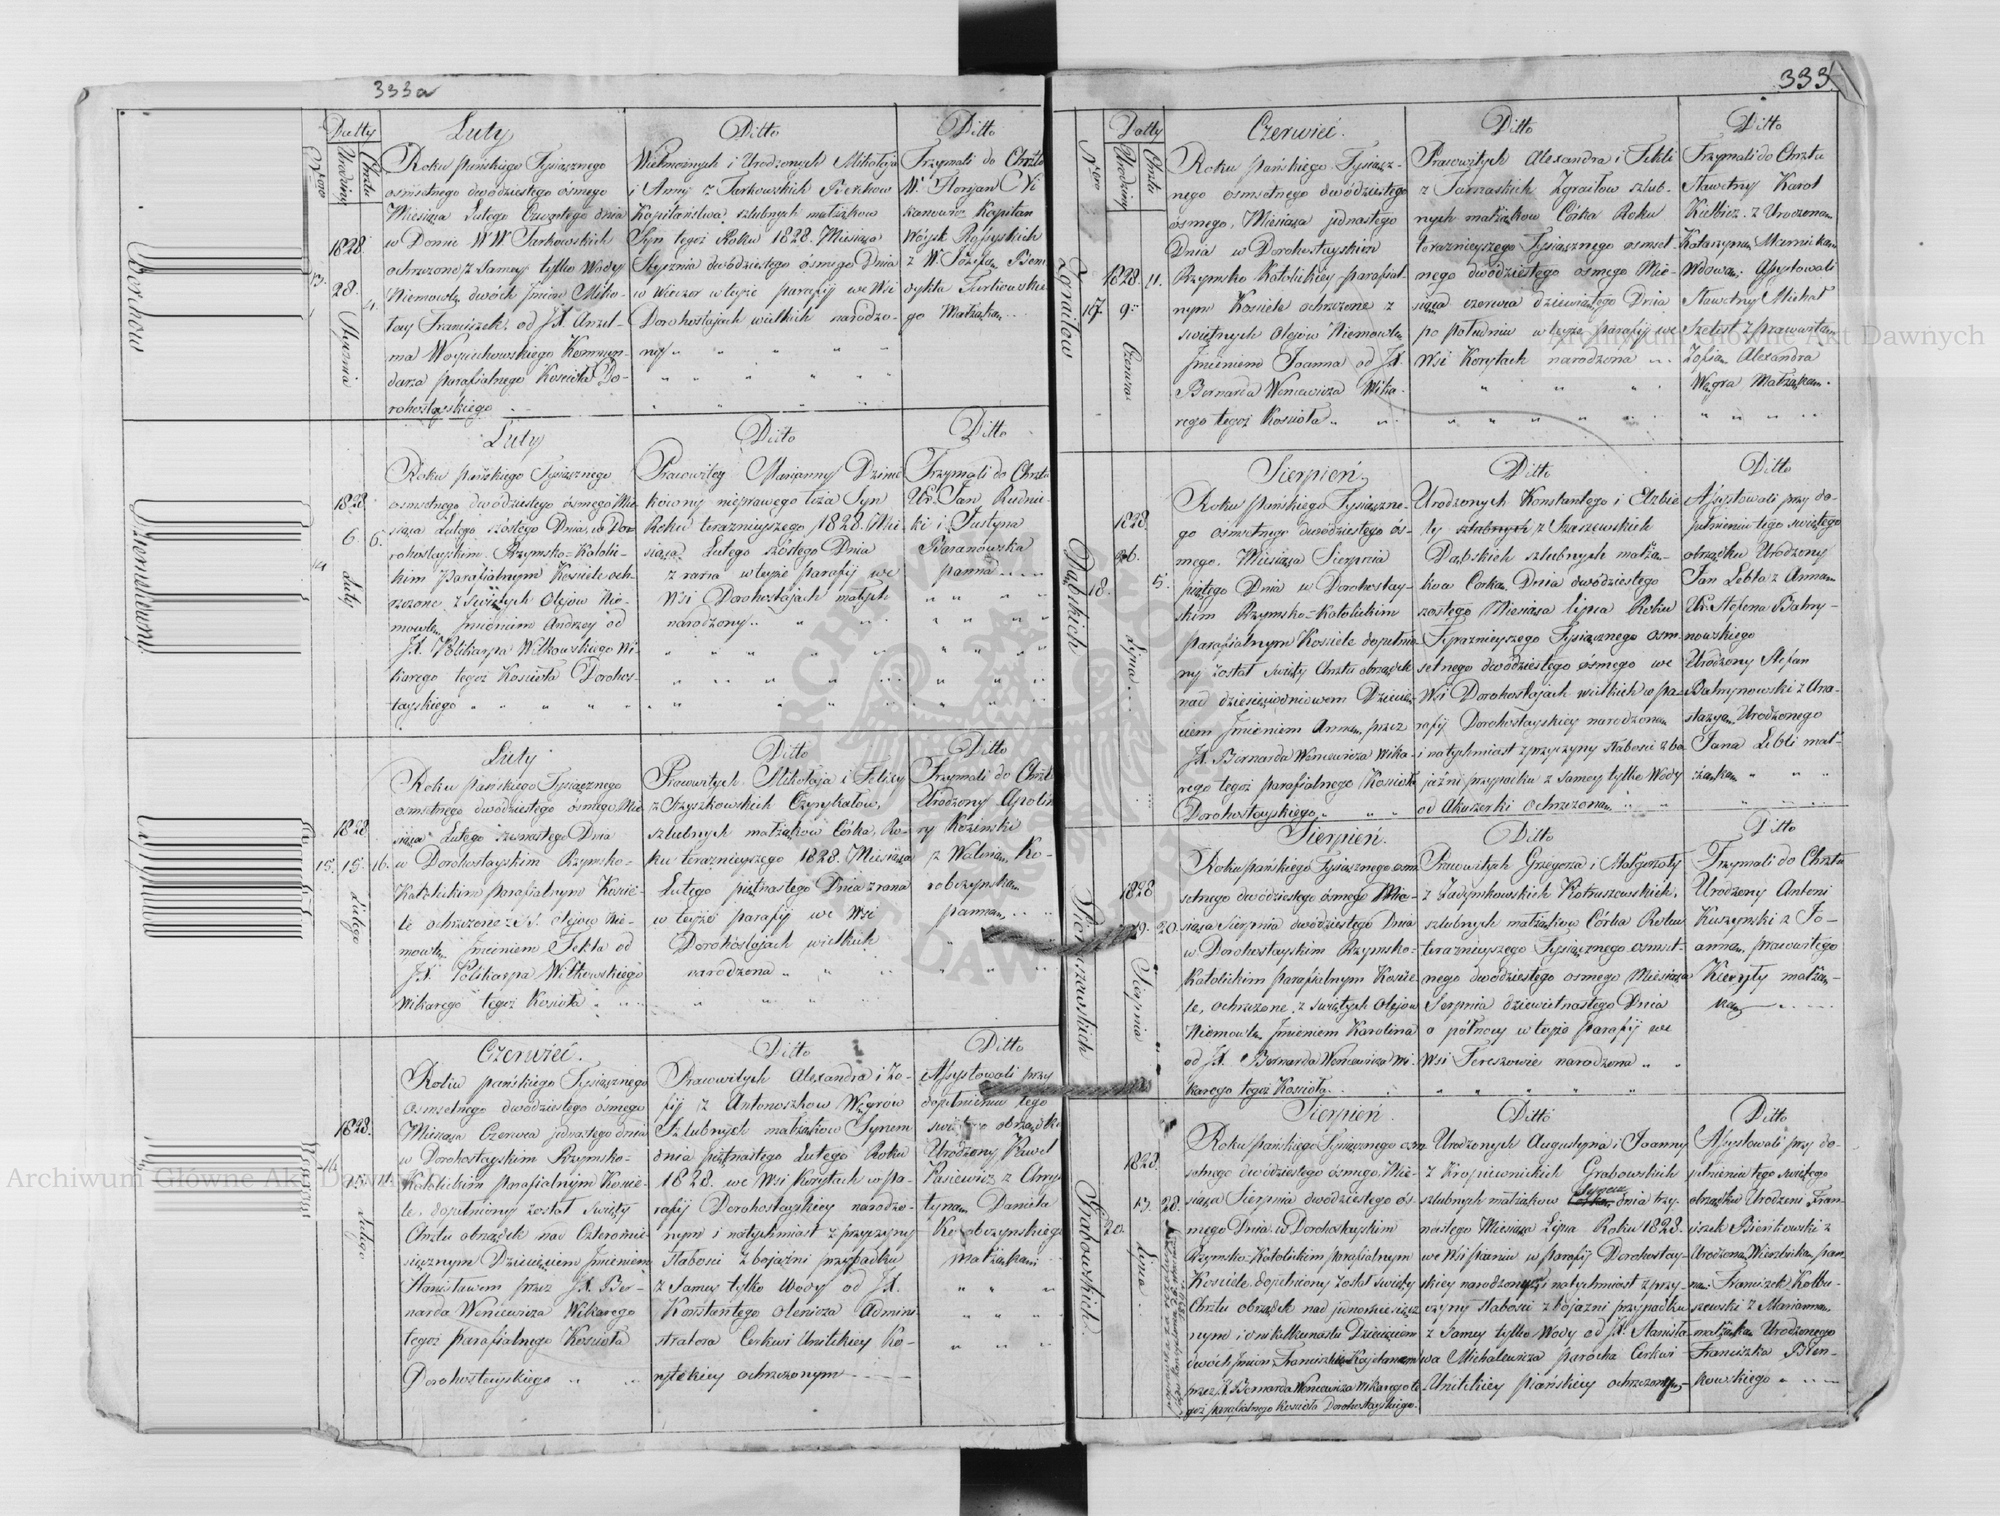 333a
Datty
Nro
Urodzin
Chrztu
Luty
Ditto
Ditto
13.
1828
28.
Stycznia
4.
Roku pańskiego Tysiącznego
osmsetnego dwódziestego ósmego
Miesiąca Lutego Czwartego dnia
w Domie WW Turkowskich
ochrzczone z Samey tylko Wody
Niemowlę dwóch Jmion Miko-
łay Franciszek od JX. Anzel-
ma Woyciechowskiego Kommen-
darza parafialnego Kościoła Do-
rohostayskiego
Wielmożnych i Urodzonych Mikołaja
i Anny z Turkowskich
Kapitaństwa szlubnych małżąkow
Syn tegoż Roku 1828. Miesiąca
Stycznia dwódziestego ósmego Dnia
w Wieczor w teyże parafij we Wsi
Dorohostajach wielkich narodzo-
ny
Trzymali do Chrztu
W. Floryan
Kapitan
Wóysk Rossyiskich
z W Józefą
Turkowskie-
go Małżąką
Dziemkowny
14
1828.
6.
Luty
6.
Luty
Ditto
Ditto
Roku pańskiego Tysiącznego
osmsetnego dwódziestego ósmego Mie-
siąca Lutego szóstego Dnia, w Doro-
rohostayskim Rzymsko-Katolic-
kim Parafialnym Kościele och-
rzczone z Swiętych Olejów Nie-
mowle Jmieniem Andrzey od
JX. Polikarpa Witkowskiego Wi-
karego tegoż Kościoła Dorohos-
tayskiego
Pracowitey Maryanny Dziem-
kowny nieprawego łoża Syn
Roku terazniejszego 1828. Mie-
siąca Lutego szóstego Dnia
z rana w teyże parafij we
Wsi Dorohostajach małych
narodzony
Trzymali do Chrztu
Ur. Jan Rudnic-
ki i Justyna
Baranowska
panna
15.
1828
15
Lutego
16.
Luty
Ditto
Ditto
Roku pańskiego Tysiącznego
osmsetnego dwódziestego ósmego Mie-
siąca Lutego szesnastego Dnia
w Dorohostayskim Rzymsko-
Katolickim parafialnym Koscie-
le ochrzczone z S. Olejow Nie-
mowle Jmieniem Tekla od
JX. Polikarpa Witkowskiego
Wikarego tegoż Kościoła
Pracowitych Mikołaja i Felicy
z Stryszkowskich
szlubnych małżąków Córka, Ro-
ku terazniejszego 1828. Miesiąca
Lutego piętnastego Dnia z rana
w teyże parafij we Wsi
Dorohostajach wielkich
narodzona
Trzymali do Chrztu
Urodzony Apolin-
ry Kozinski
z Waleryą Ko-
robczynską
panną
1828.
15
Lutego
11
Czerwiec.
Ditto
Ditto
Roku pańskiego Tysiącznego
osmsetnego dwódziestego ósmego
Miesiąca Czerwca jednastego dnia
w Dorohostayskim Rzymsko-
Katolickim parafialnym Koscie-
le, dopełniony został Swięty
Chrztu obrządek nad Czteromie-
sięcznym Dziecięciem Jmieniem
Stanisławem przez JX. Ber-
narda Woniewicza Wikarego
tegoż parafialnego Kościoła
Dorohostayskiego
Pracowitych Alexandra i Zo-
fij z Antonoszkow Węgrów
Szlubnych małżąków Synem
dnia piętnastego Lutego Roku
1828. we Wsi Korytach w pa-
rafij Dorohostayskiey narodzo-
nym i natychmiast z przyczyny
Słabosci z bojaźni przypadku
z Samey tylko Wody od JX.
Konstantego Admini-
stratora Cerkwi Unitckiey Ko-
rytckiey ochrzczonym
Assystowali przy
dopełnieniu tego
świętego obrządku
Urodzony Paweł
Pasiewicz z Chry-
styną Daniela
Korobczynskiego
małżąką
333
Datty
Nro
Urodzin
Chrztu
Zgraiłow
17.
1828.
9.
Czerwca
11.
Czerwiec.
Ditto
Ditto
Roku pańskiego Tysiącz-
nego osmsetnego dwódziestego
ósmego, Miesiąca jednastego
Dnia w Dorohostayskim
Rzymsko-Katolickiey parafial-
nym Kosciele ochrzczone z
swiętnych Olejów Niemowle
Jmieniem Joanna od JX.
Bernarda Woniewicza Wika-
rego tegoż Kościoła
Pracowitych Alexandra i Tekli
z Tarnaskich Zgraiłow szlub-
nych małżąkow Córka Roku
terazniejszego Tysiącznego osmset-
nego dwódziestego osmego Mie-
siąca czerwca dziewiątego Dnia
po południu w teyże parafij we
Wsi Korytach narodzona
Trzymali do Chrztu
Sławetny Karol
Kiełbicz z Urodzoną
Katarzyną
Wdową. Assystowali
Sławetny Michał
Szelest z pracowitą
Zofią Alexandra
Węgra Małżąką.
Dąbskich
18.
1828
26.
Lipca
5.
Sierpień
Ditto
Ditto
Roku pańskiego Tysiączne-
go osmsetnego dwódziestego ós-
mego, Miesiąca Sierpnia
piątego Dnia w Dorohostay-
skim Rzymsko-Katolickim
parafialnym Kosciele dopełnio-
ny został swięty Chrztu obrządek
nad dziesięciodniowem Dziecię-
ciem Jmieniem Anną przez
JX. Bernarda Woniewicza Wika-
rego tegoż parafialnego Kościoła
Dorohostayskiego
Urodzonych Konstantego i Elzbie-
ty szlubnych z Szaszewskich
Dąbskich szlubnych małżą-
kow Córką Dnia dwódziestego
szostego Miesiąca lipca Roku
Terazniejszego Tysiącznego osm-
setnego dwódziestego ósmego we
Wsi Dorohostajach wielkich w pa-
rafij Dorohostayskiey narodzoną
i natychmiast z przyczyny słabości z bo-
jaźni przypadku z Samey tylko Wody
od Akuszerki ochrzczoną
Assystowali przy do-
pełnieniu tego swiętego
obrządku Urodzony
Jan Lebla z Anną
Ur. Stefana Balny-
nowskiego
Urodzony Stefan
Balnynowski z Ana-
stazyą Urodzonego
Jana Lebli mał-
żąką
Kotruszewskich
1828
19.
Sierpnia
20.
Sierpień.
Ditto
Ditto
Roku pańskiego Tysiącznego osm-
setnego dwódziestego osmego Mie-
siąca Sierpnia dwódziestego Dnia
w Dorohostayskim Rzymsko-
Katolickim parafialnym Koscie-
le, ochrzczone z swiętych Olejow
Niemowle Jmieniem Karolina
od JX. Bernarda Woniewicza Wi-
karego tegoż Kościoła
Pracowitych Grzegorza i Małgorzaty
z Zadymkowskich Kotruszewskich
szlubnych małżąkow Córka Roku
terazniejszego Tysiącznego osmset-
nego dwódziestego osmego Miesiąca
Sierpnia dziewietnastego Dnia
o północy w teyże parafij we
Wsi Tereszowie narodzona
Trzymali do Chrztu
Urodzony Antoni
Kuszynski z Jo-
anną pracowitego
małżą-
ką
Grabowskich
20.
1828.
13.
Lipca
28.
Sierpień
Ditto
Ditto
Roku pańskiego Tysiącznego osm-
setnego dwódziestego ósmego, Mie-
siąca Sierpnia dwódziestego ós-
mego Dnia w Dorohostayskim
Rzymsko-Katolickim parafialnym
Kosciele dopełniony został swięty
Chrztu obrządek nad jednomiesięcz-
nym i dnikilkunastu Dziecięciem
dwoch Jmion Franciszkiem Kajetanem
przez JX. Bernarda Woniewicza Wikarego te-
goż parafialnego Kościoła Dorohostayskiego.
Urodzonych Augustyna i Joanny
z Kropiwnickich Grabowskich
szlubnych małżąkow Synem dnia trzy-
nastego Miesiąca Lipca Roku 1828.
we Wsi pianiu w parafij Dorohostay-
skiey narodzonym i natychmiast z przy-
czyny słabosci z bojazni przypadku
z Samey tylko Wody od JX. Stanisła-
wa Michalewicza parocha Cerkwi
Unitckiey piańskiey ochrzczonym
Assystowali przy do-
pełnieniu tego swiętego
obrządku Urodzeni Fran-
ciszek Bieńkowski z
Urodzoną Wierzbicką pan-
ną. Franciszek Kotłu-
szewski z Marianną
małżąką Urodzonego
Franciszka Bień-
kowskiego
Archiwum Główne Akt Dawnych
Archiwum Główne Akt Dawnych